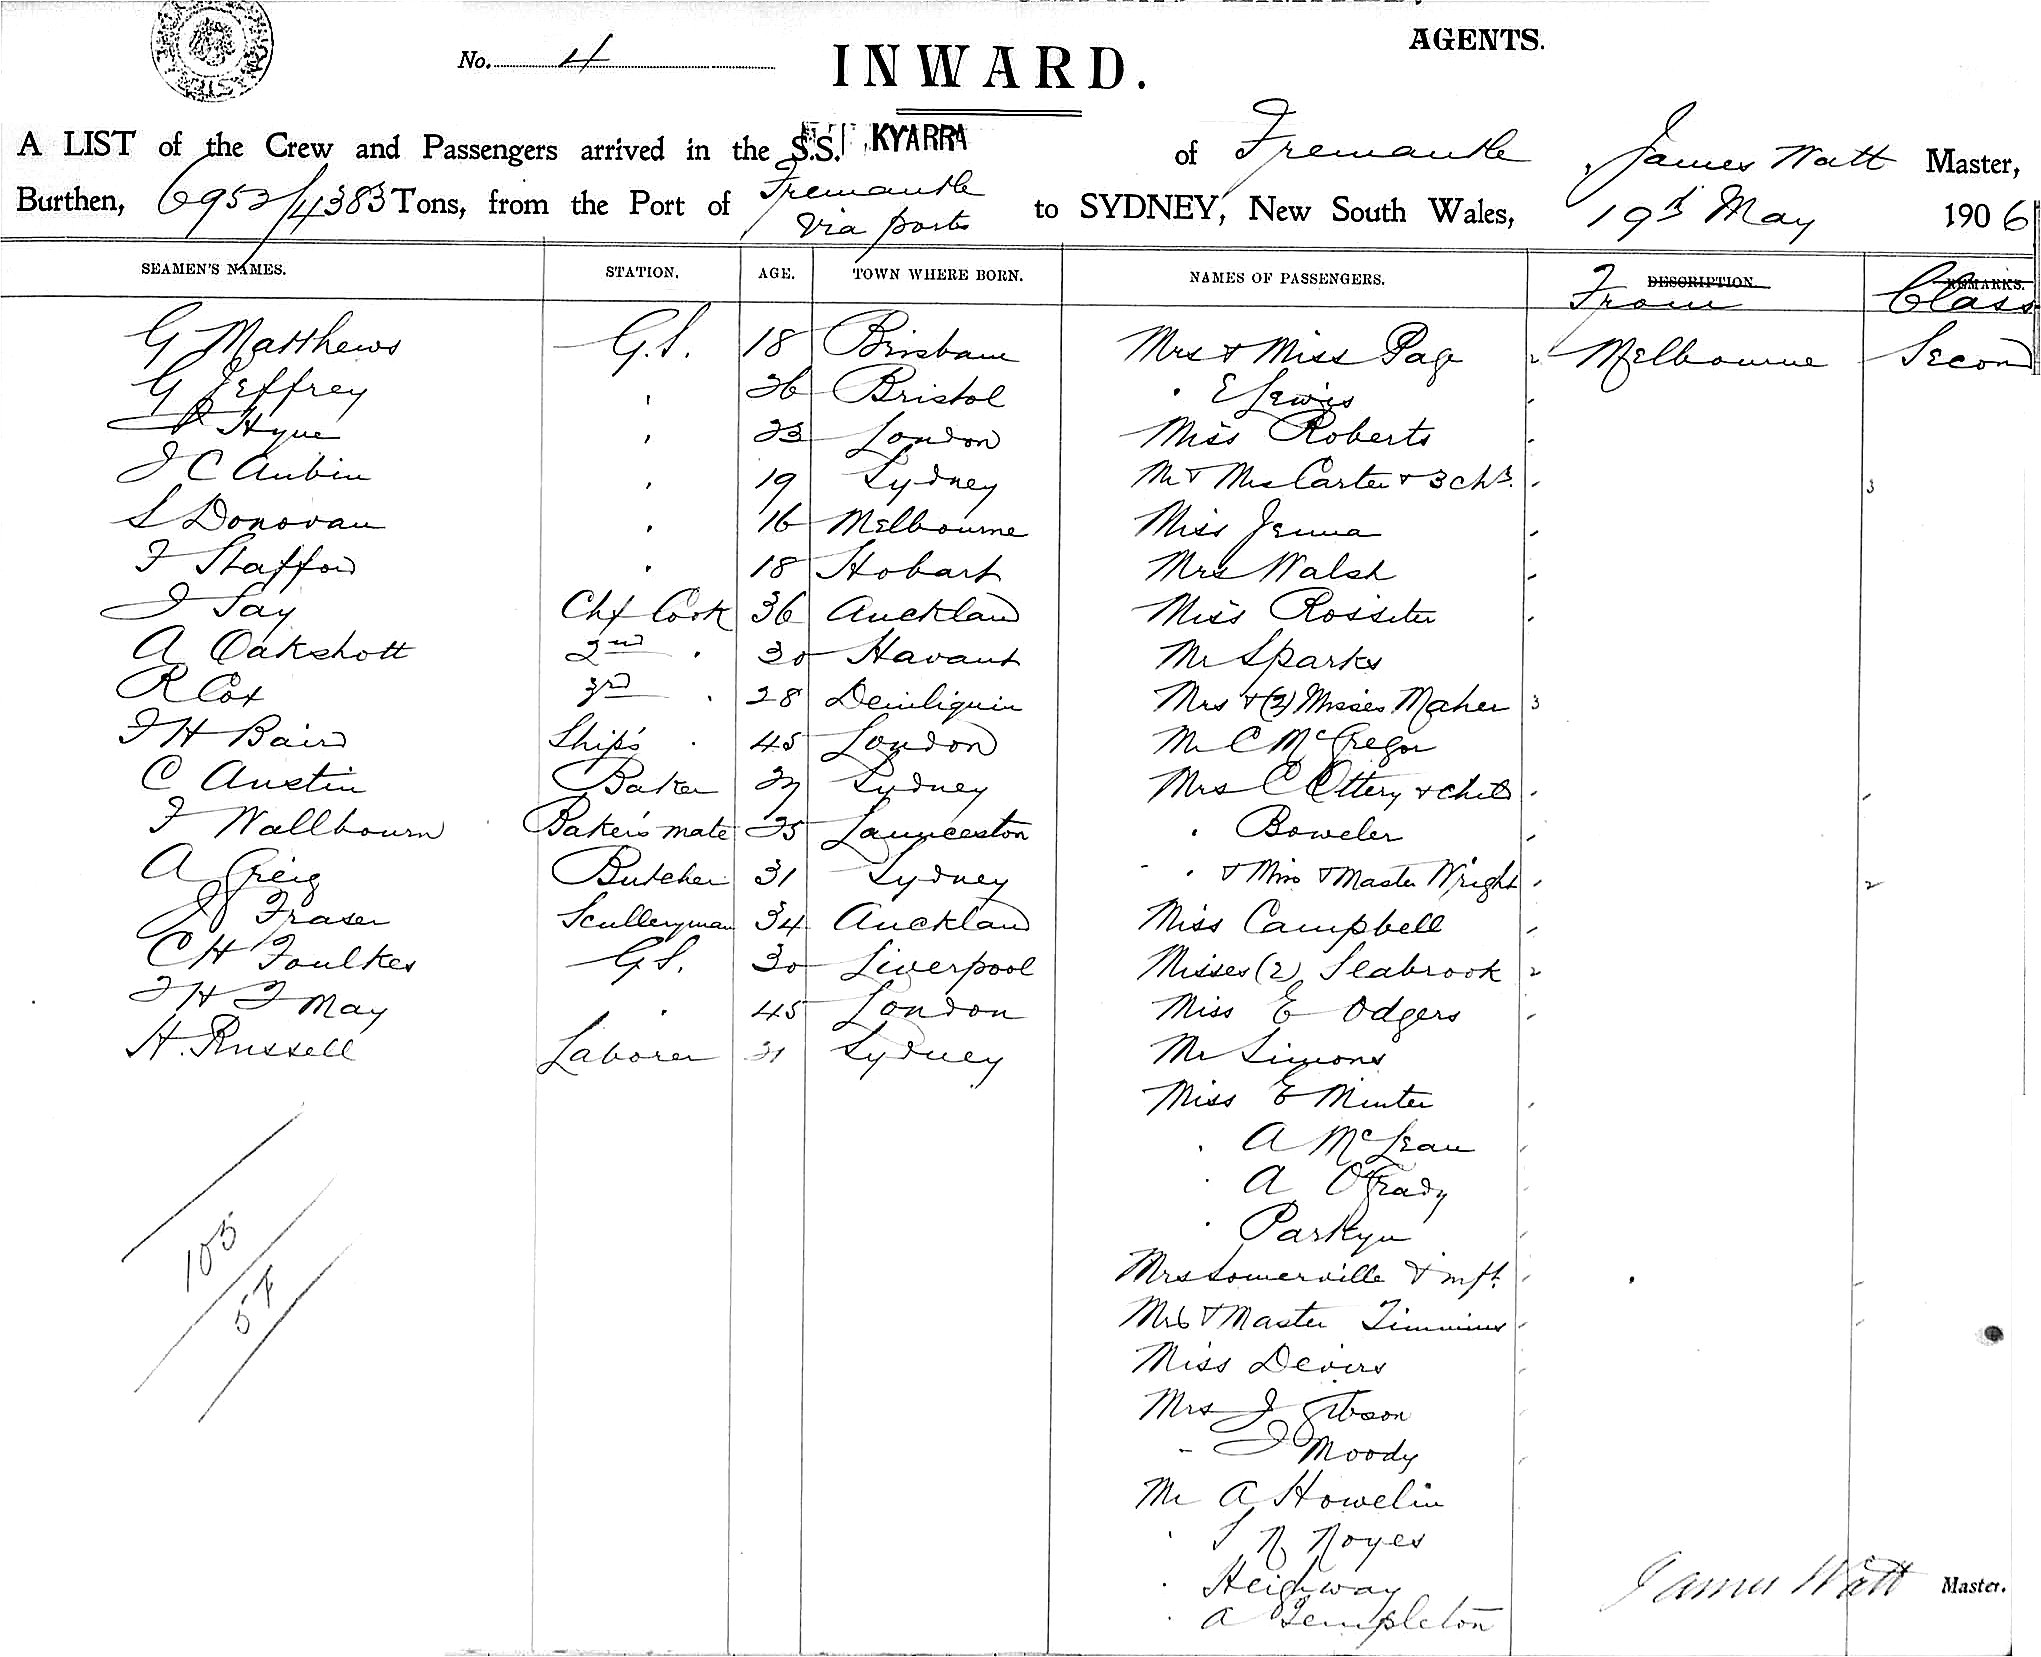 AGENTS.
No. 4
INWARD.
A LIST of the Crew and Passengers arrived in the S.S. KYARRA of Fremantle, James Watt Master,
Burthen, 6953/4383 Tons, from the Port of Fremantle via ports to SYDNEY, New South Wales, 19th May 1906
SEAMEN'S NAMES. STATION. AGE. TOWN WHERE BORN. NAMES OF PASSENGERS. DESCRIPTION From REMARKS. Class
G Matthews G.S. 18 Brisbane Mrs & Miss Page 2 Melbourne Second
G Jeffrey " 26 Bristol " E Lewis
Hyne " 23 London Miss Roberts
J C Aubin " 19 Sydney Mr & Mrs Carter & 3 chn. 3
S Donovan " 16 Melbourne Miss Jenna
F Stafford " 18 Hobart Mrs Walsh
J Say Chf Cook 36 Auckland Miss Rossiter
A Oakshott 2nd " 30 Havant Mr Sparks
R Cox 3rd " 28 Deniliquin Mrs & (2) Misses Maher 3
F H Baird Ship's " 45 London Mr C McGregor
C Austin Baker Sydney Mrs C Ottery & child
F Wallbourn Baker's mate 25 Launceston " Boweler
A Greig Butcher 31 Sydney " & Miss & Master Wright 2
J Fraser Sculleryman 34 Auckland Miss Campbell
C H Foulkes G.S. 30 Liverpool Misses (2) Seabrook 2
F H F May " 45 London Miss E Odgers
H. Russell Laborer 31 Sydney Mr Simons
Miss E Minter
" A McLean
" A O'Grady
" Parkyn
Mrs Somerville & inft.
Mrs & Master Timmins
Miss Devers
Mrs J Gibson
" J Moody
Mr A Howelin
" S N Noyes
" Heighway
" A Templeton
103
54
James Watt Master.